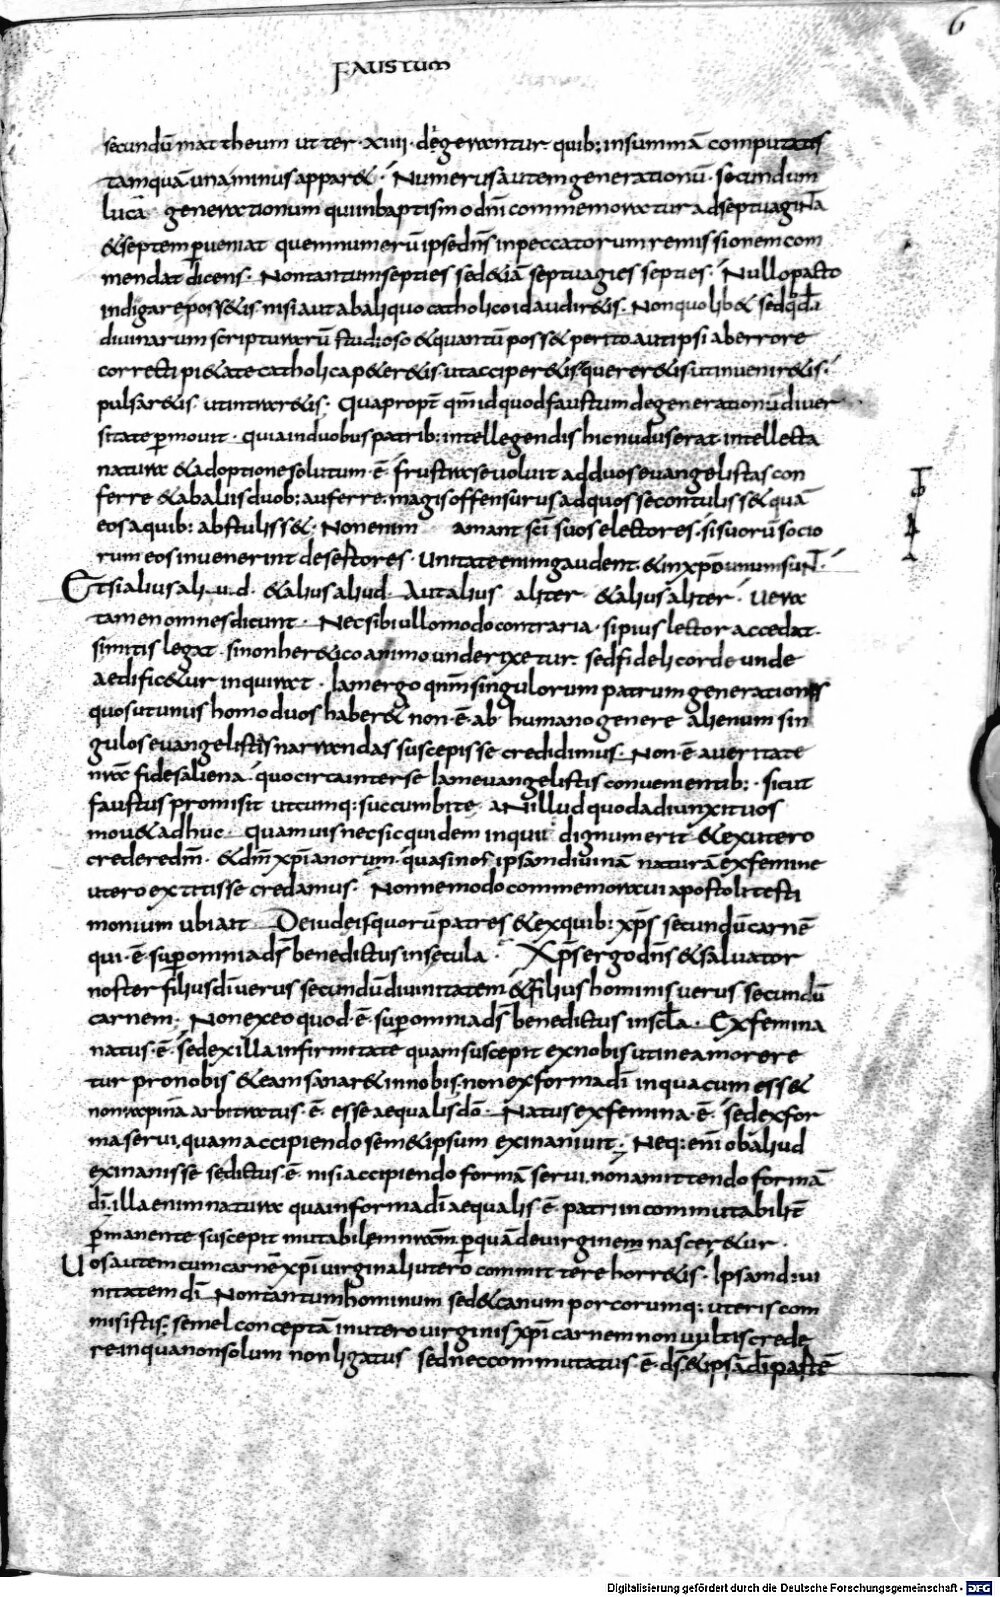 6
FAUSTUM
secundū mattheum ut ter · xiiii · degerantur quib; in summā computatis
tamquā una minus appar& · Numerus autem generationū · secundum
lucā generationum qui in baptismo dn̄i commemoratur ad septuaginta
& septem ꝑueniat quem numerū ipse dn̄s in peccatorum remissionem com
mendat dicens · Non tantum septies sed &iā septuagies septies · Nullo pacto
indigare poss&is · nisi aut ab aliquo catholico id audir&is · Non quolib& sed
diuinarum scripturarū studioso & quantū poss& perito aut ipsi ab errore
correcti pi&ate catholica p&er&is ut acciper&is quærer&is ut inuenir&is ·
pulsar&is · ut intrar&is · Quapropt̄ qm̄ id quod faustum de generationū diuer
sitate ꝑmouit · quia in duobus patrib; intellegendis hic nudus erat intellecta
natura & adoptione solutum · ē · frustra se uoluit ad duos euangelistas con
ferre & ab aliis duob; auferre · magis offensurus ad quos se contuliss& quā
eos a quib; abstuliss& · Non enim amant sc̄i suos electores · si suorū socio
rum eos inuenerint desertores · Unitate enim gaudent · & in xp̄o unum sunt ·
Etsi alius aliud · & alius aliud · Aut alius aliter · & alius aliter · uera
tamen omnes dicunt · Nec sibi ullo modo contraria · si pius lector accedat ·
si mitis legat · si non her&ico animo unde rixetur · sed fideli corde unde
aedific&ur inquirat · Iam ergo qm̄ singulorum patrum generationes
quos ut unus homo duos haber& non · ē · ab humano genere alienum sin
gulos euangelistis narrandas suscepisse credidimus · Non · ē · a ueritate
nr̄a fides aliena · quocirca inter se iam euangelistis conuenientib; · sicut
faustus promisit utcumq; succumbite · An illud quod adiunxit uos
mou& adhuc · Quamuis nec sic quidem inquit dignum erit · & ex utero
credere dm̄ · & dm̄ xp̄ianorum · quasi nos ipsam diuinā naturā ex femine
utero extitisse credamus · Nonne modo commemoraui apostoli testi
monium ubi ait · De iudeis quorū patres & ex quib; xp̄s secundū carnē
qui · ē · suꝑ omnia ds̄ benedictus in secula · Xp̄s ergo dn̄s & saluator
noster filius dī uerus secundū diuinitatem & filius hominis uerus secundū
carnem · Non ex eo quod · ē · suꝑ omnia ds̄ benedictus in scl̄a · Ex femina
natus · ē · sed ex illa infirmitate quam suscepit ex nobis ut in ea morere
tur pro nobis & eam sanar& in nobis · non ex forma dī in qua cum ess&
non rapinā arbitratus · ē · esse aequalis dō · Natus ex femina · ē · sed ex for
ma serui, quam accipiendo sem&ipsum exinaniuit · Neq; enī ob aliud
exinanisse se dictus · ē · nisi accipiendo formā serui, non amittendo formā
dī · illa enim natura qua in forma dī aequalis · ē · patri incommutabilit̄
ꝑmanente suscepit mutabilem nr̄am ꝑ quā de uirginem nascer&ur ·
Uos autem cum carnē xp̄i uirginali utero committere horr&is · Ipsam diui
nitatem dī Non tantum hominum sed & canum porcorumq; uteris com
misistis · semel conceptā in utero uirginis xp̄i carnem non uultis crede
re in qua non solum non ligatus sed nec commutatus · ē · ds̄ & ipsā dī partē
Digitalisierung gefördert durch die Deutsche Forschungsgemeinschaft - DFG